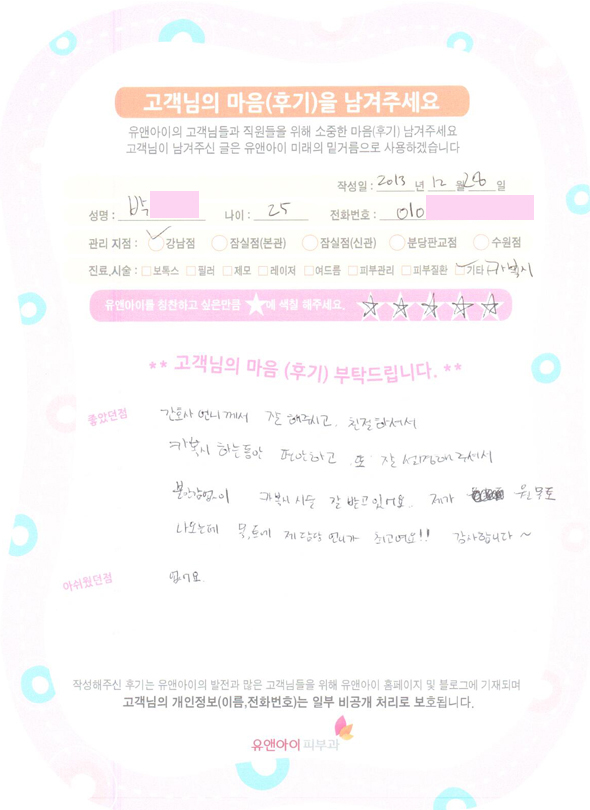 고객님의 마음(후기)을 남겨주세요
유앤아이의 고객님들과 직원들을 위해 소중한 마음(후기) 남겨주세요
고객님이 남겨주신 글은 유앤아이 미래의 밑거름으로 사용하겠습니다
작성일 : 2013 년 12 월 28 일
성명 : 박 나이 : 25 전화번호 : 010
관리 지점 : 강남점 잠실점(본관) 잠실점(신관) 분당판교점 수원점
진료,시술 : 보톡스 필러 제모 레이저 여드름 피부관리 피부질환 기타 카복시
유앤아이를 칭찬하고 싶은만큼 ★에 색칠 해주세요.
** 고객님의 마음 (후기) 부탁드립니다. **
좋았던점 간호사 언니께서 잘 해주시고, 친절하셔서
카복시 하는동안 편안하고 또 잘 설명해 주셔서
불안감없이 카복시 시술 잘 받고있어요. 제가
나오는데 제 담당 언니가 최고예요!! 감사합니다~
아쉬웠던점 없어요.
작성해주신 후기는 유앤아이의 발전과 많은 고객님들을 위해 유앤아이 홈페이지 및 블로그에 기재되며
고객님의 개인정보(이름,전화번호)는 일부 비공개 처리로 보호됩니다.
유앤아이 피부과